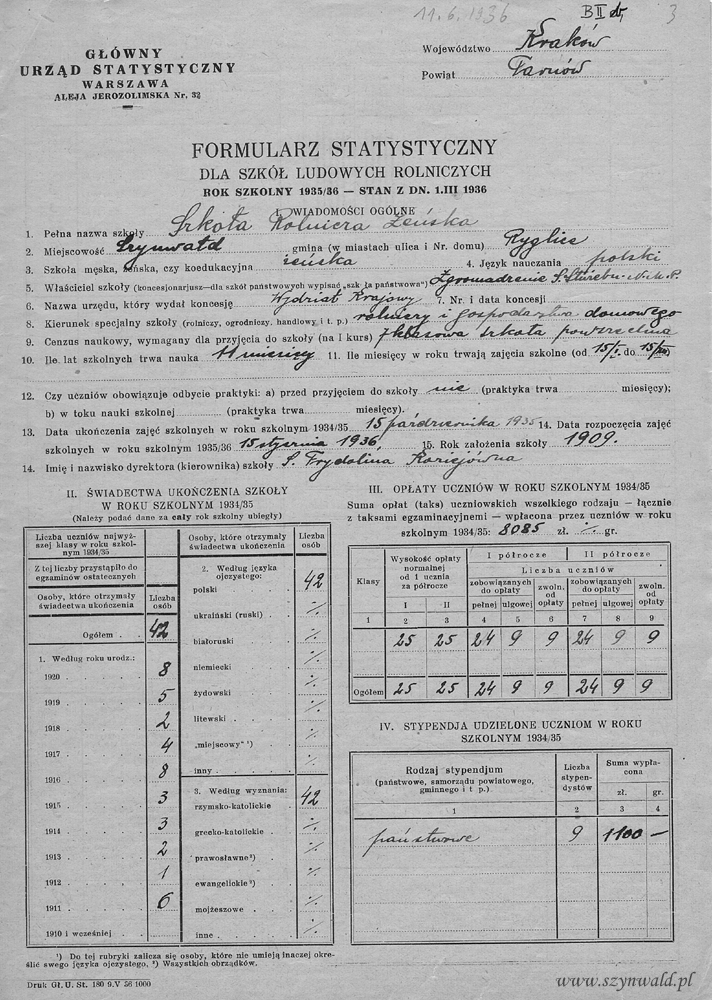 11.6.1936
B II
3
GŁÓWNY
URZĄD STATYSTYCZNY
WARSZAWA
ALEJA JEROZOLIMSKA Nr. 32
Województwo Kraków
Powiat Tarnów
FORMULARZ STATYSTYCZNY
DLA SZKÓŁ LUDOWYCH ROLNICZYCH
ROK SZKOLNY 1935/36 — STAN Z DN. 1.III 1936
I. WIADOMOŚCI OGÓLNE
1. Pełna nazwa szkoły Szkoła Rolnicza Żeńska
2. Miejscowość Szynwałd gmina (w miastach ulica i Nr. domu) Ryglice
3. Szkoła męska, żeńska, czy koedukacyjna żeńska 4. Język nauczania polski
5. Właściciel szkoły (koncesjonarjusz—dla szkół państwowych wypisać „szkoła państwowa") Zgromadzenie S. Służebn. N.M.P.
6. Nazwa urzędu, który wydał koncesję Wydział Krajowy 7. Nr. i data koncesji
8. Kierunek specjalny szkoły (rolniczy, ogrodniczy, handlowy, i t. p.) rolniczy i gospodarstwa domowego
9. Cenzus naukowy, wymagany dla przyjęcia do szkoły (na I kurs) 7 klasowa szkoła powszechna
10. Ile lat szkolnych trwa nauka 11 miesięcy 11. Ile miesięcy w roku trwają zajęcia szkolne (od 15/I do 15/XII)
12. Czy uczniów obowiązuje odbycie praktyki: a) przed przyjęciem do szkoły nie (praktyka trwa miesięcy);
b) w toku nauki szkolnej (praktyka trwa miesięcy).
13. Data ukończenia zajęć szkolnych w roku szkolnym 1934/35 15 października 1935 14. Data rozpoczęcia zajęć
szkolnych w roku szkolnym 1935/36 15 stycznia 1936 15. Rok założenia szkoły 1909.
14. Imię i nazwisko dyrektora (kierownika) szkoły S. Frydolina Koziejówna
II. ŚWIADECTWA UKOŃCZENIA SZKOŁY
W ROKU SZKOLNYM 1934/35
(Należy podać dane za cały rok szkolny ubiegły)
Liczba uczniów najwyższej klasy w roku szkolnym 1934/35
Z tej liczby przystąpiło do egzaminów ostatecznych
Osoby, które otrzymały świadectwa ukończenia Liczba osób
Ogółem 42
1. Według roku urodz.:
1920 8
1919 5
1918 2
1917 4
1916 8
1915 3
1914 3
1913 2
1912 1
1911 6
1910 i wcześniej
Osoby, które otrzymały świadectwa ukończenia Liczba osób
2. Według języka ojczystego:
polski 42
ukraiński (ruski) ·/.
białoruski ·/.
niemiecki ·/.
żydowski ·/.
litewski ·/.
„miejscowy" ¹) ·/.
inny ·/.
3. Według wyznania:
rzymsko-katolickie 42
grecko-katolickie ·/.
prawosławne²) ·/.
ewangelickie²) ·/.
mojżeszowe ·/.
inne ·/.
¹) Do tej rubryki zalicza się osoby, które nie umieją inaczej określić swego języka ojczystego, ²) Wszystkich obrządków.
Druk Gł. U. St. 180 9.V 36 1000
III. OPŁATY UCZNIÓW W ROKU SZKOLNYM 1934/35
Suma opłat (taks) uczniowskich wszelkiego rodzaju — łącznie
z taksami egzaminacyjnemi — wpłacona przez uczniów w roku
szkolnym 1934/35: 8085 zł. ·/. gr.
Klasy Wysokość opłaty normalnej od 1 ucznia za półrocze I półrocze II półrocze
Liczba uczniów
zobowiązanych do opłaty zwoln. od opłaty zobowiązanych do opłaty zwoln. od opłaty
I II pełnej ulgowej pełnej ulgowej
1 2 3 4 5 6 7 8 9
25 25 24 9 9 24 9 9
Ogółem 25 25 24 9 9 24 9 9
IV. STYPENDJA UDZIELONE UCZNIOM W ROKU
SZKOLNYM 1934/35
Rodzaj stypendjum (państwowe, samorządu powiatowego, gminnego i t p.) Liczba stypendystów Suma wypłacona
zł. gr.
1 2 3 4
państwowe 9 1100 —
www.szynwald.pl